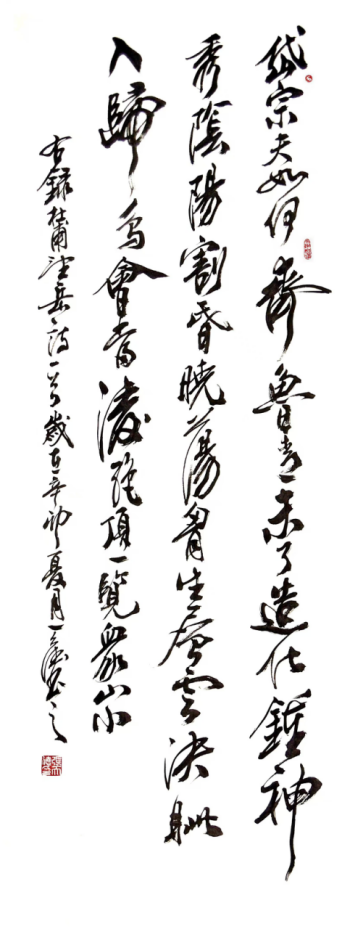 岱宗夫如何齊魯青未了造化鍾神
秀陰陽割昏曉蕩胷生層雲決眦
入歸鳥會當凌絕頂一覽眾山小
右錄杜甫望岳詩一首歲在辛卯夏月一